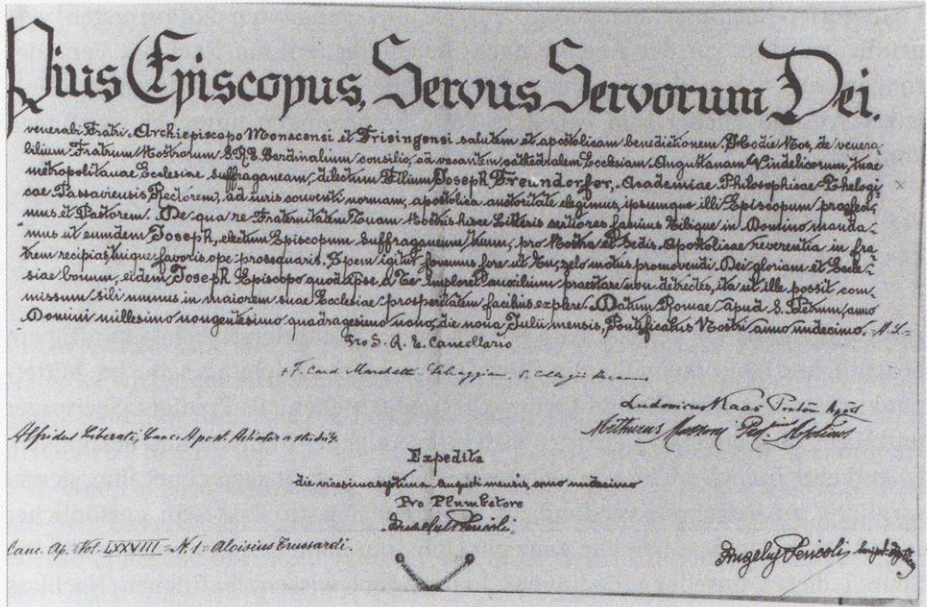 Pius Episcopus, Servus Servorum Dei.
venerabi Fratri, Archiepiscopo Monacensi et Frisingensi salutem et apostolicam benedictionem. Hodie Nos, de venera
bilium Fratrum Nostrorum S.R.E. Cardinalium consilio, ad vacantem cathedralem Ecclesiam Augustanam Vindelicorum, tuae
metropolitanae Ecclesiae suffraganeam, dilectum Filium Joseph Freundorfer, Academiae Philosophicae-Thelogi
cae Passaviensis Rectorem, ad iuris conventi normam, apostolica auctoritate elegimus, ipsumque illi Episcopum praefeci,
mus et Pastorem. De qua re Fraternitatem Tuam Nostris hisce Litteris certiorem facimus Tibique in Domino manda-
mus ut eumdem Joseph, electum Episcopum suffraganeum tuum, pro Nostra et Sedis Apostolicae reverentia in fra
trem recipias tuique favoris ope prosequaris. Spem igitur fovemus fore ut Tu, zelo motus promovendi Dei gloriam et Eccle-
siae bonum, eidem Joseph Episcopo quod ipse a Te imploret auxilium praestare non detrectes, ita ut ille possit com-
missum sibi munus in maiorem suae Ecclesiae prosperitatem facilius explere. Datum Romae apud S. Petrum, anno
Domini millesimo nongentesimo quadragesimo nono, die nona Julii mensis, Pontificatus Nostri anno undecimo. - A.L.-
Pro S. R. E. Cancellario
+ F. Card. Marchetti Selvaggiani, S. Collegii Decanus
Ludovicus Kaas Proton. Apost.
Alfridus Liberati, Canc. Apost. Adiutor a studiis
Expedita
die vicesima septima Augusti mensis, anno undecimo
Pro Plumbatore
Angelus Pericoli
Canc. Ap. Vol. LXXVIII = N. 1 = Aloisius Trussardi.
Angelus Pericoli